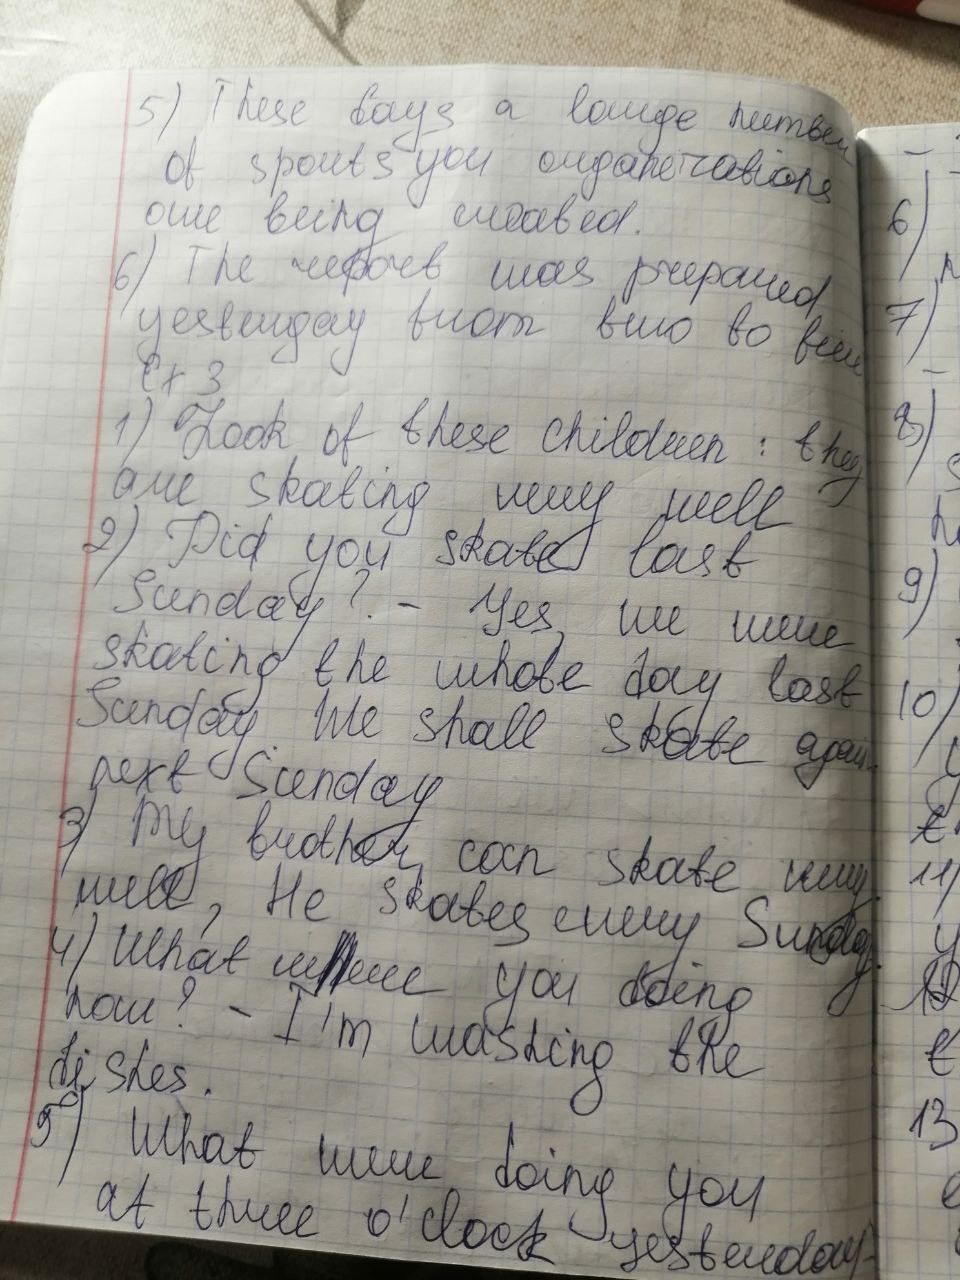 5) These days a large number
of sports you organizations
are being created.
6) The report was prepared
yesterday from two to five
Ex 3
1) Look of these children : they
are skating very well
2) Did you skate last
Sunday? - Yes, we were
skating the whole day last
Sunday We shall skate again
next Sunday
3) My brother can skate very
well, He skates every Sunday.
4) What were you doing
now? - I'm washing the
dishes.
5) What were doing you
at three o'clock yesterday
-
6)
7)
-
8)
9)
10)
11)
13